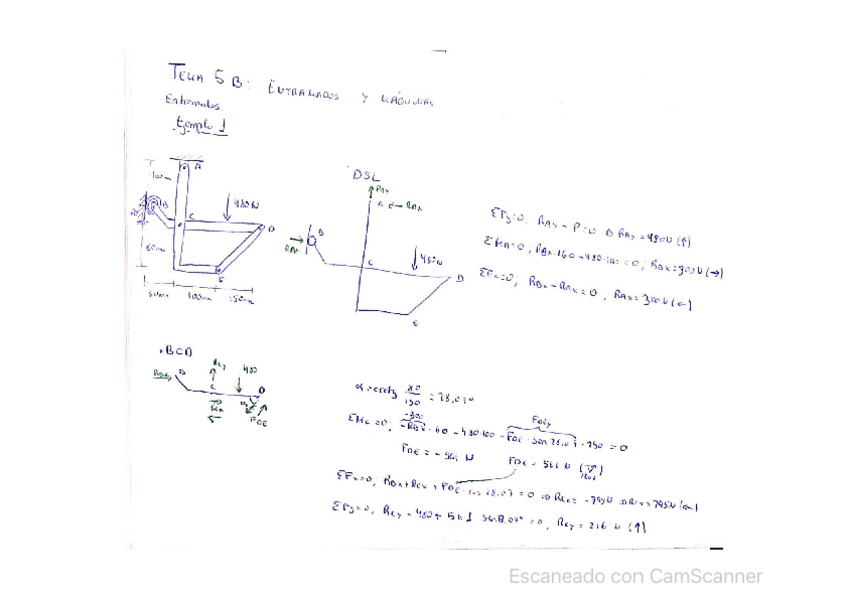 TEMA 5 B: ENTRAMADOS Y MÁQUINAS
Entramados
Ejemplo 1
DSL
A
B
C
480N
D
E
60mm
100mm
150mm
RAy
A ← RAx
B
RBx
C
480N
D
E
ΣFy=0, RAy - P=0 → RAy=480N(↑)
ΣMA=0, RBx·160-480·100=0; RBx=300N(→)
ΣFx=0, RBx-RAx=0, RAx=300N(←)
• BCD
RBx
B
RCy
480
C
RCx
D
α
FDE
α=arctg 80/150 = 28,07°
-300
FDEy
ΣMC=0, -RBx·60-480·100-FDE·sen 28,07·250=0
FDE=-561 N FDE=561 N
ΣFx=0, RBx+RCx+FDE·cos 28.07=0 ⇒ RCx=-795N RCx=795N(←)
ΣFy=0, RCy-480+561 sen28.07°=0, RCy=216N(↑)
Escaneado con CamScanner